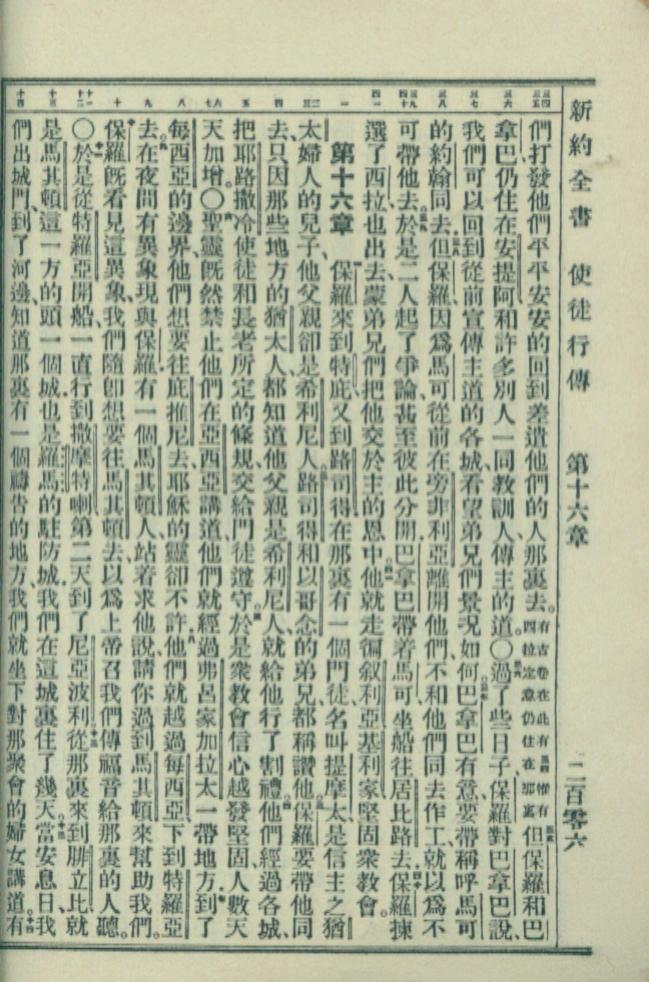 新約全書　使徒行傳　第十六章　二百零六
們打發他們平平安安的回到差遣他們的人那裏去。有古卷在此有惟有西拉定意仍住在那裏但保羅和巴
拿巴仍住在安提阿和許多別人一同敎訓人傳主的道。〇過了些日子保羅對巴拿巴說、
我們可以回到從前宣傳主道的各城看望弟兄們景况如何巴拿巴有意要帶稱呼馬可
的約翰同去但保羅因爲馬可從前在旁非利亞離開他們不和他們同去作工就以爲不
可帶他去於是二人起了爭論甚至彼此分開巴拿巴帶着馬可坐船往居比路去保羅揀
選了西拉也出去蒙弟兄們把他交於主的恩中他就走徧叙利亞基利家堅固衆敎會。
第十六章　保羅來到特庇又到路司得在那裏有一個門徒名叫提摩太是信主之猶
太婦人的兒子他父親卻是希利尼人路司得和以哥念的弟兄都稱讚他保羅要帶他同
去只因那些地方的猶太人都知道他父親是希利尼人就給他行了割禮他們經過各城、
把耶路撒冷使徒和長老所定的條規交給門徒遵守於是衆敎會信心越發堅固人數天
天加增。〇聖靈旣然禁止他們在亞西亞講道他們就經過弗呂家加拉太一帶地方到了
每西亞的邊界他們想要往庇推尼去耶穌的靈卻不許他們就越過每西亞下到特羅亞
去在夜間有異象現與保羅有一個馬其頓人站着求他說請你過到馬其頓來幫助我們。
保羅旣看見這異象、我們隨卽想要往馬其頓去以爲上帝召我們傳福音給那裏的人聽。
〇於是從特羅亞開船一直行到撒摩特喇第二天到了尼亞波利從那裏來到腓立比就
是馬其頓這一方的頭一個城也是羅馬的駐防城我們在這城裏住了幾天當安息日我
們出城門到了河邊知道那裏有一個禱告的地方我們就坐下對那聚會的婦女講道有